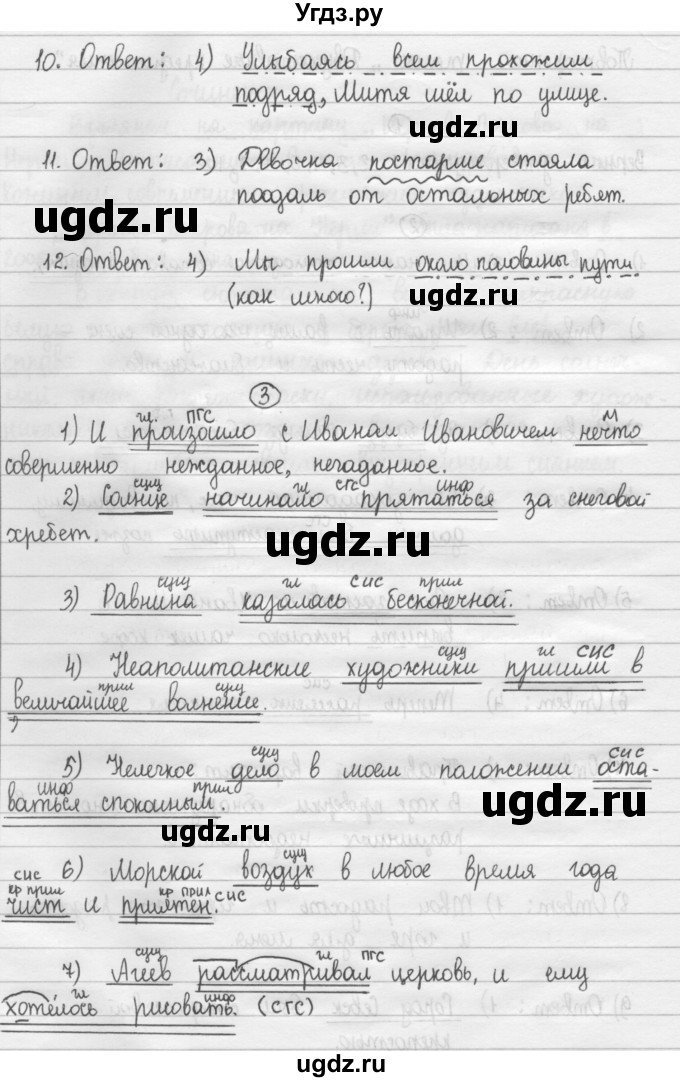 Угдз.ру
10. Ответ: 4) Улыбаясь всем прохожим
подряд, Митя шёл по улице.
ugdz.ru
11. Ответ: 3) Девочка постарше стояла
поодаль от остальных ребят.
ugdz.ru ugdz.ru
12. Ответ: 4) Мы прошли около половины пути.
(как много?)
ugdz.ru
3
гл ПГС м
1) И произошло с Иваном Ивановичем нечто
совершенно нежданное, негаданное.
сущ гл СГС инф
2) Солнце начинало прятаться за снеговой
хребет.
ugdz.ru
сущ гл СИС прил
3) Равнина казалась бесконечной.
сущ гл СИС
4) Неаполитанские художники пришли в
прил сущ
величайшее волнение.
ugdz.ru
сущ СИС
5) Нелегкое дело в моем положении оста-
инф прил
ваться спокойным.
ugdz.ru ugdz.ru
СИС сущ
6) Морской воздух в любое время года
кр прил кр прил СИС
чист и приятен.
сущ ПГС
7) Агеев рассматривал церковь, и ему
гл инф
хотелось рисовать. (СГС)
ugdz.ru
ugdz.ru